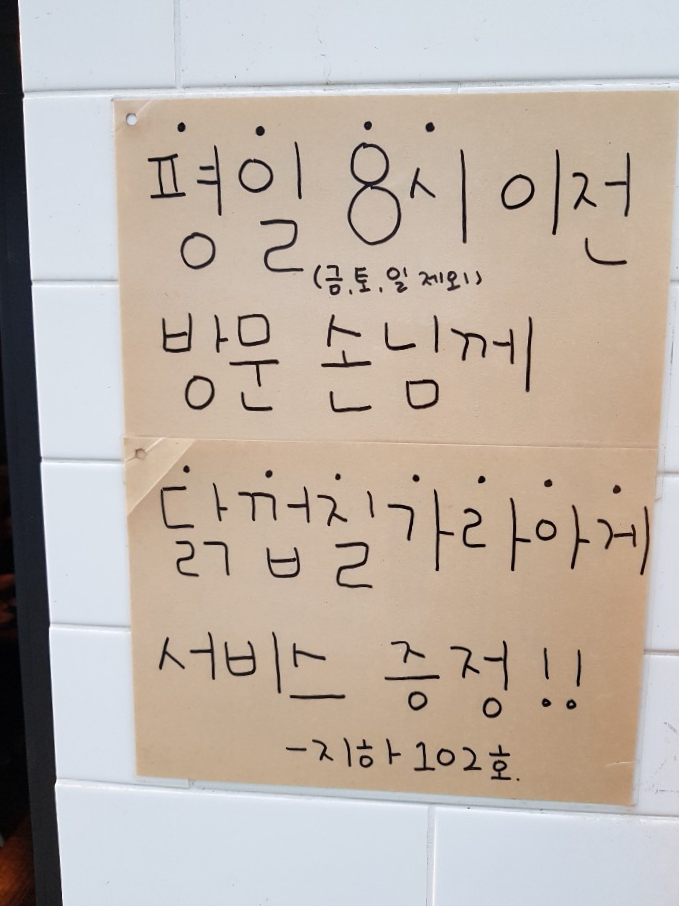 평일 8시 이전
(금,토,일 제외)
방문 손님께
닭껍질가라아게
서비스 증정!!
-지하 102호.